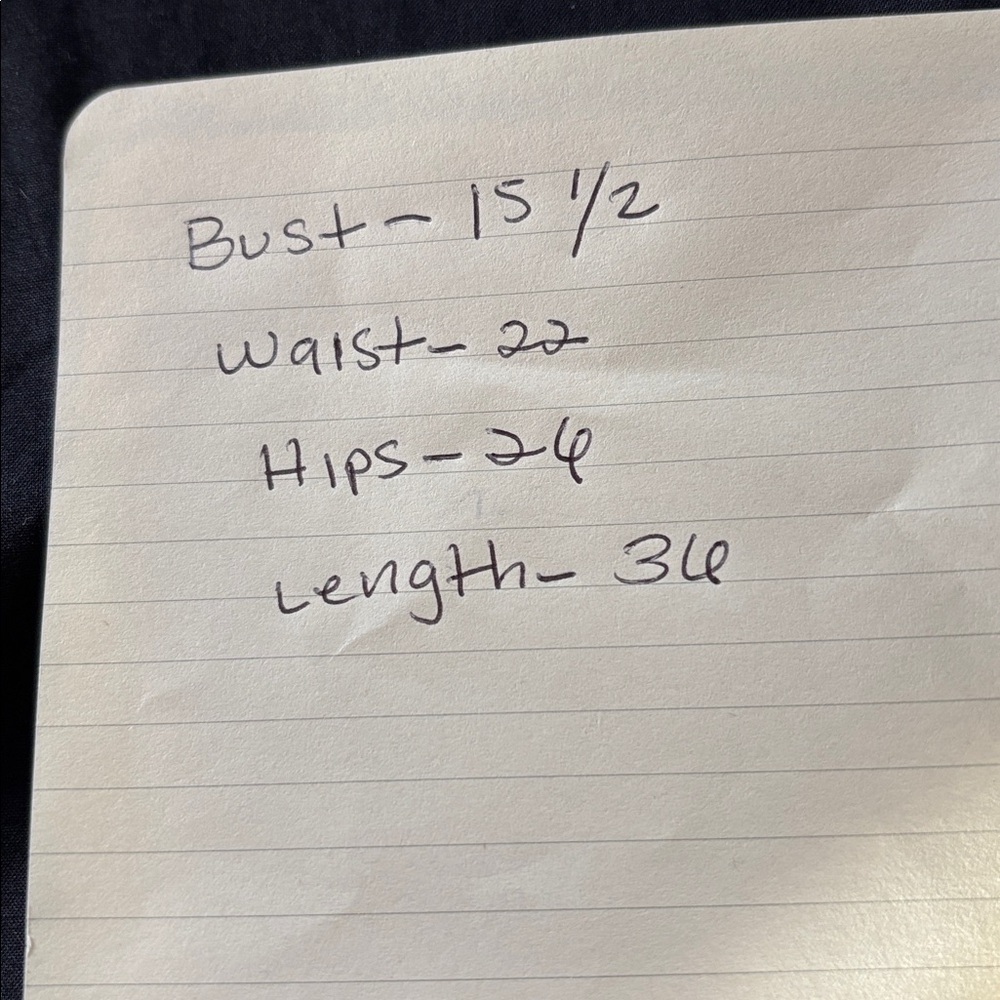 Bust - 15 1/2
Waist - 22
Hips - 26
Length - 36